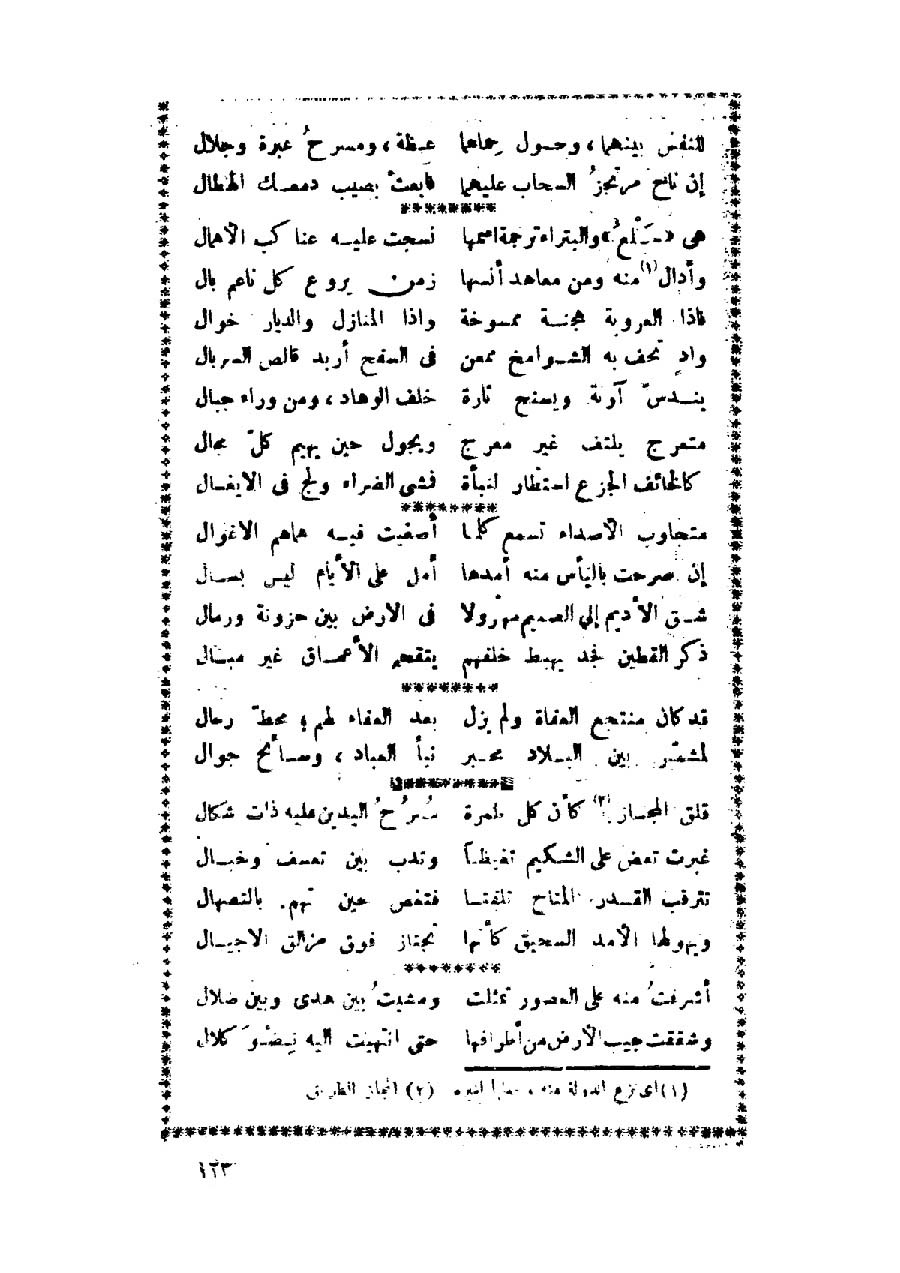 للنفس بينهما، وحول رحماهما عظة، ومسرحُ عبرة وجلال
إن ناح مرتجزُ السحاب عليهما فابعث بصبيب دمعك الهطال
هي «سَلْعُ» والبتراء ترجمة اسمها نسجت عليه عناكب الآهال
وأدال (١) منه ومن معاهد أنسها زمن يروع كل ناعم بال
فاذا العروبة هجنة ممسوخة واذا المنازل والديار خوال
وادٍ تحف به الشوامخ ممعن في السفح أربد قالص السربال
يندسّ آونة ويسنح تارة خلف الوهاد، ومن وراء جبال
متعرج يلتف غير معرج ويجول حين يهيم كلّ مجال
كالخائف الجزع استطار لنبأة فمشى الضراء ولج في الايغال
متجاوب الأصداء تسمع كلما أصغيت فيه هماهم الاغوال
إن صرحت باليأس منه أمدها أمل على الأيام ليس ببال
شق الأديم إلى الصميم مهرولا في الارض بين حزونة ورمال
ذكر القطين نجد يهبط خلفهم يتقحم الأعماق غير مبال
قد كان منتجع العفاة ولم يزل بعد العفاء لهم، محطّ رحال
لمشمّر بين البلاد مخبر نبأ العباد، وسائح جوال
قلق المجاز (٢) كأن كل طمرة سُرُحُ اليدين عليه ذات شكال
غبرت تعض على الشكيم تغيظاً وتدب بين تعسف وخبال
تترقب القدر المتاح تلفتا فتغص حين تهم بالتصهال
ويهولها الأمد السحيق كأنها تجتاز فوق مزالق الاجبال
أشرفتُ منه على العصور تمثلت ومشيتُ بين هدى وبين ضلال
وشققت جيب الأرض من أطرافها حتى انتهيت اليه نِضْوَ كلال
(١) أي نزع الدولة منه (٢) المجاز الطريق
١٢٣